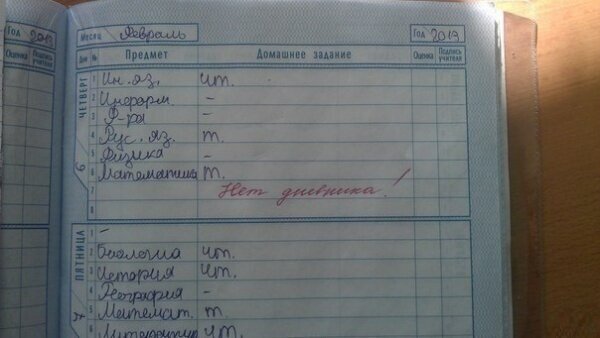 Год 2013
Оценка Подпись учителя
Месяц Февраль Год 2013
Дни № Предмет Домашнее задание Оценка Подпись учителя
ЧЕТВЕРГ 6
1 Ин. яз. чт.
2 Информ –
3 Ф-ра –
4 Рус. яз. т.
5 Физика –
6 Математика т.
7 Нет дневника!
8
ПЯТНИЦА 7
1 –
2 Биология чт.
3 История чт.
4 География –
5 Математ. т.
6 Литература чт.